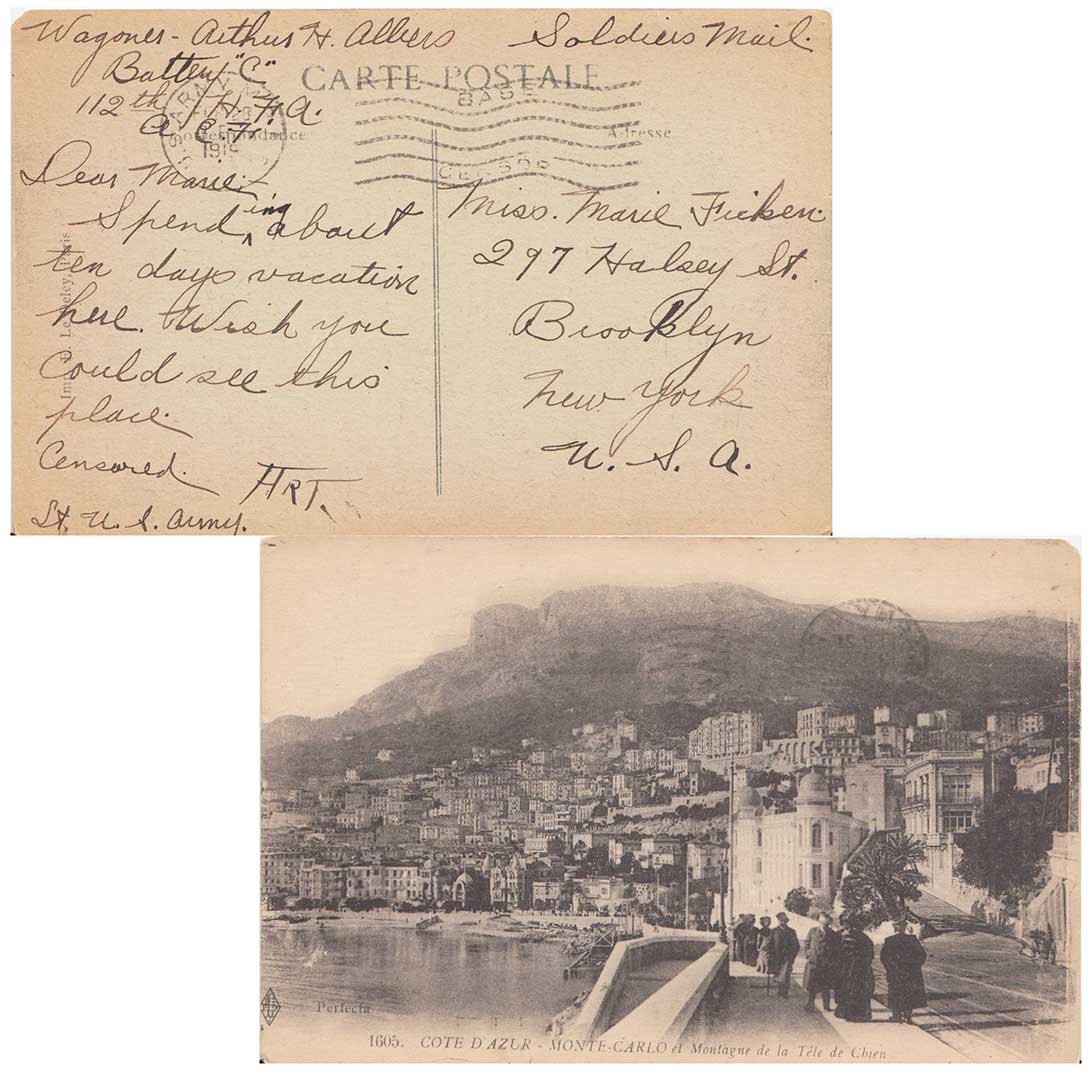 Wagoner - Arthur H. Albers
Battery "C"
112th H. F. A.
A. E. F.
Soldiers Mail.
CARTE POSTALE
ARMY
1919
BASE
CENSOR
Correspondance
Adresse
Dear Marie:-
Spending about
ten days vacation
here. Wish you
could see this
place.
Censored.
ART.
Lt. U. S. Army.
Miss. Marie Ficken.
297 Halsey St.
Brooklyn
New York
U. S. A.
Paris
Perfecta
1605. COTE D'AZUR - MONTE-CARLO et Montagne de la Tête de Chien